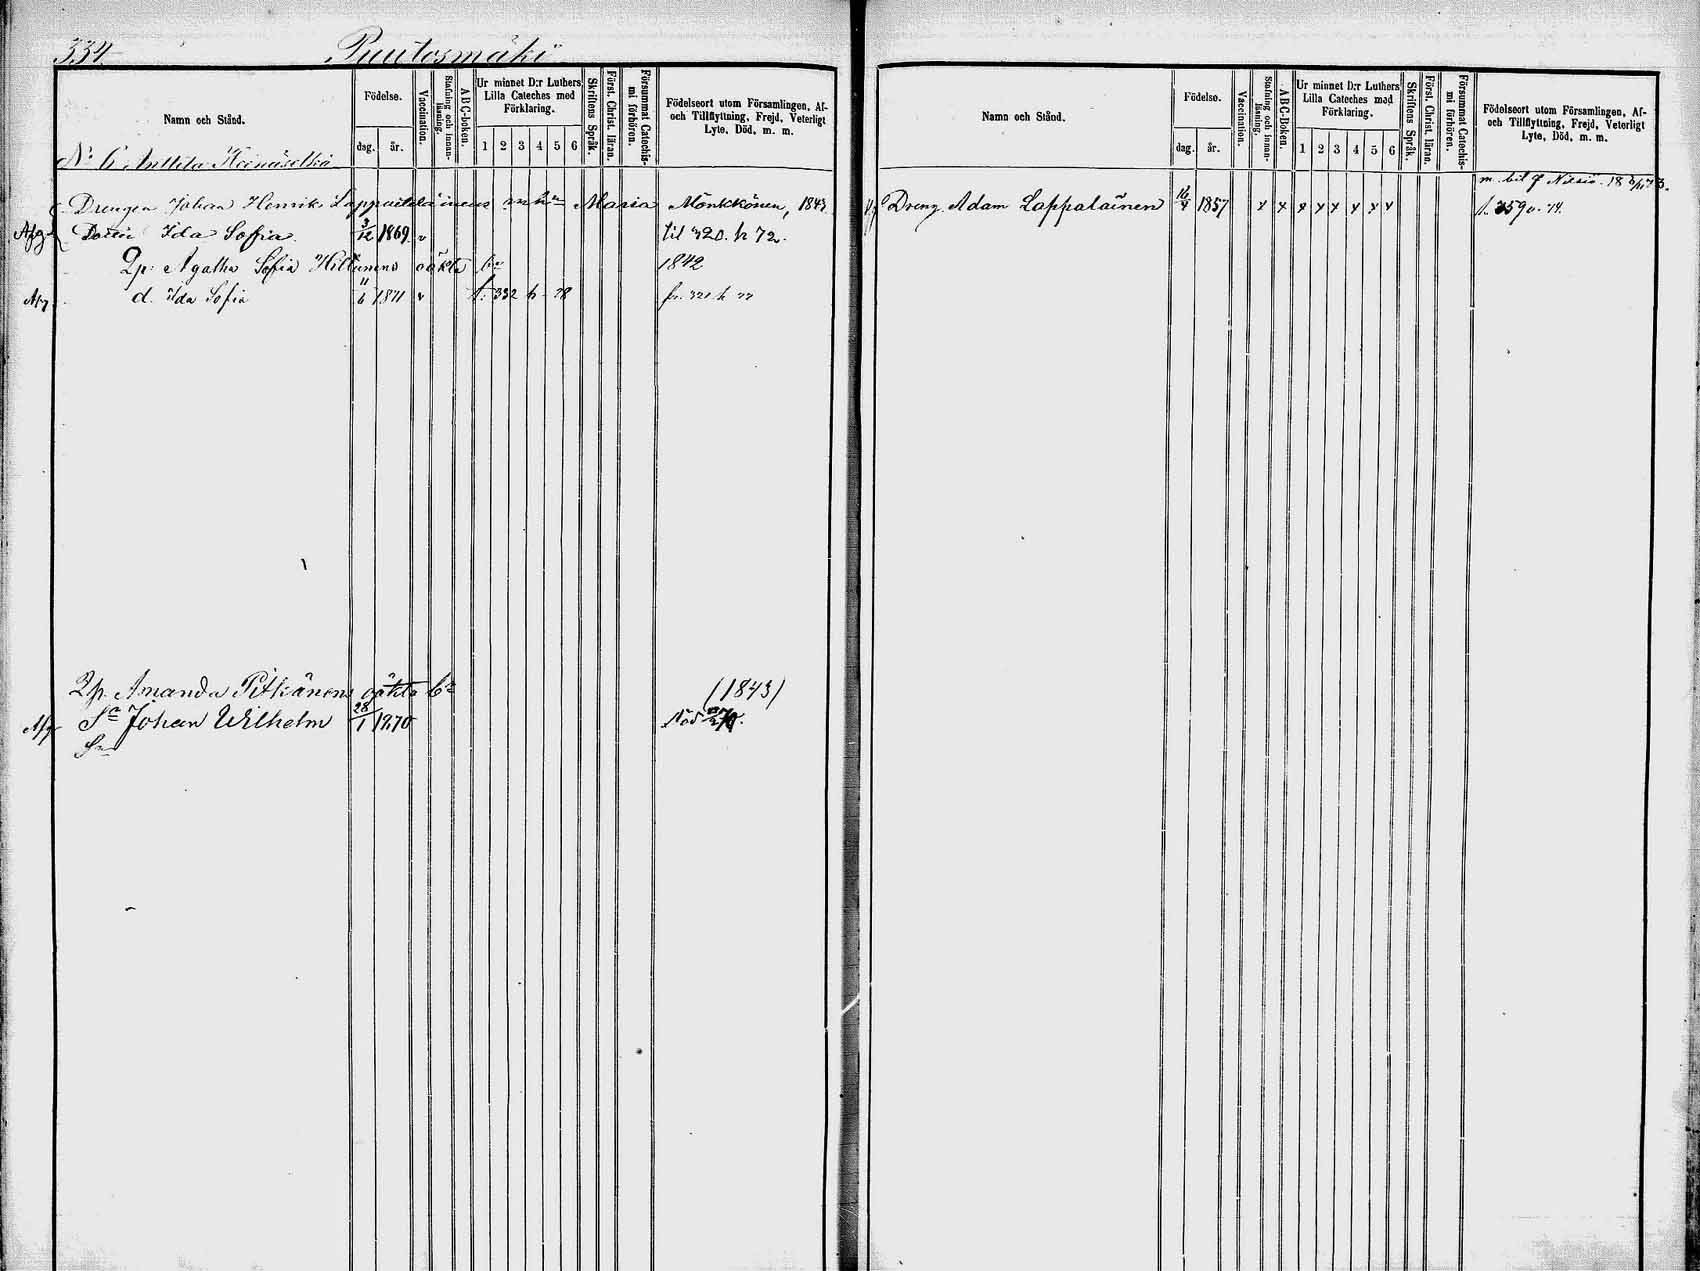 334 Puutosmäki
Namn och Stånd.
Födelse.
dag. år.
Vaccination.
Stafning och innan-läsning.
ABC-boken.
Ur minnet D:r Luthers Lilla Cateches med Förklaring.
1 2 3 4 5 6
Skriftens Språk.
Först. Christ. läran.
Försummat Catechis-mi förhören.
Födelseort utom Församlingen, Af-
och Tillflyttning, Frejd, Veterligt
Lyte, Död, m. m.
No 6 Anttila
Drengen Johan Henrik Lappalainens Maria Mönkkönen, 1843
Afg Dotter Ida Sofia 3/12 1869 v til 320. h 72.
Qp: Agatha Sofia Hiltunens oäkta bn 1842
Afg d. Ida Sofia 11/6 1871 v t. 332 h 78 fr. 321 h 77
Qp. Amanda Pitkänens oäkta bn (1843)
Afg Sn Johan Wilhelm 28/1 1870 död
Sn
Namn och Stånd.
Födelse.
dag. år.
Vaccination.
Stafning och innan-läsning.
ABC-Boken.
Ur minnet D:r Luthers Lilla Cateches med Förklaring.
1 2 3 4 5 6
Skriftens Språk.
Först. Christ. läran.
Försummat Catechis-mi förhören.
Födelseort utom Församlingen, Af-
och Tillflyttning, Frejd, Veterligt
Lyte, Död, m. m.
m. bet f Nilsiä
Dreng Adam Lappalainen 16/4 1857 x x x x x x x x t. 590. 74.